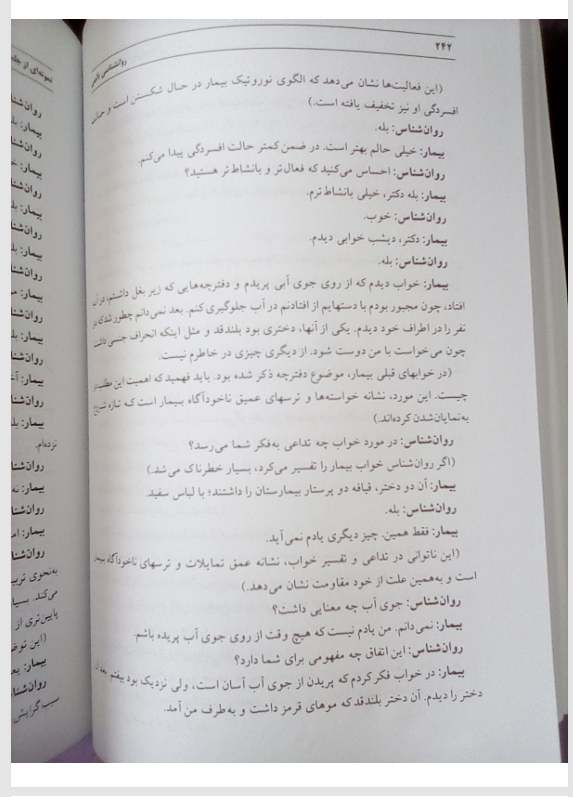 ۲۴۲
روانشناسی بالینی
(این فعالیت‌ها نشان می‌دهد که الگوی نوروتیک بیمار در حال شکستن است و حالت
افسردگی او نیز تخفیف یافته است.)
روان‌شناس: بله.
بیمار: خیلی حالم بهتر است. در ضمن کمتر حالت افسردگی پیدا می‌کنم.
روان‌شناس: احساس می‌کنید که فعال‌تر و بانشاط‌تر هستید؟
بیمار: بله دکتر، خیلی بانشاط ترم.
روان‌شناس: خوب.
بیمار: دکتر، دیشب خوابی دیدم.
روان‌شناس: بله.
بیمار: خواب دیدم که از روی جوی آبی پریدم و دفترچه‌هایی که زیر بغل داشتم، در آن
افتاد، چون مجبور بودم با دستهایم از افتادنم در آب جلوگیری کنم. بعد نمی‌دانم چطور شد که دو
نفر را در اطراف خود دیدم. یکی از آنها، دختری بود بلندقد و مثل اینکه انحراف جنسی داشت
چون می‌خواست با من دوست شود. از دیگری چیزی در خاطرم نیست.
(در خوابهای قبلی بیمار، موضوع دفترچه ذکر شده بود. باید فهمید که اهمیت این مطلب در
چیست. این مورد، نشانه خواسته‌ها و ترسهای عمیق ناخودآگاه بیمار است که تازه شروع
به‌نمایان‌شدن کرده‌اند.)
روان‌شناس: در مورد خواب چه تداعی به‌فکر شما می‌رسد؟
(اگر روان‌شناس خواب بیمار را تفسیر می‌کرد، بسیار خطرناک می‌شد.)
بیمار: آن دو دختر، قیافه دو پرستار بیمارستان را داشتند؛ با لباس سفید.
روان‌شناس: بله.
بیمار: فقط همین. چیز دیگری یادم نمی‌آید.
(این ناتوانی در تداعی و تفسیر خواب، نشانه عمق تمایلات و ترسهای ناخودآگاه بیمار
است و به‌همین علت از خود مقاومت نشان می‌دهد.)
روان‌شناس: جوی آب چه معنایی داشت؟
بیمار: نمی‌دانم. من یادم نیست که هیچ وقت از روی جوی آب پریده باشم.
روان‌شناس: این اتفاق چه مفهومی برای شما دارد؟
بیمار: در خواب فکر کردم که پریدن از جوی آب آسان است، ولی نزدیک بود بیفتم. بعد آن
دختر را دیدم. آن دختر بلندقد که موهای قرمز داشت و به‌طرف من آمد.